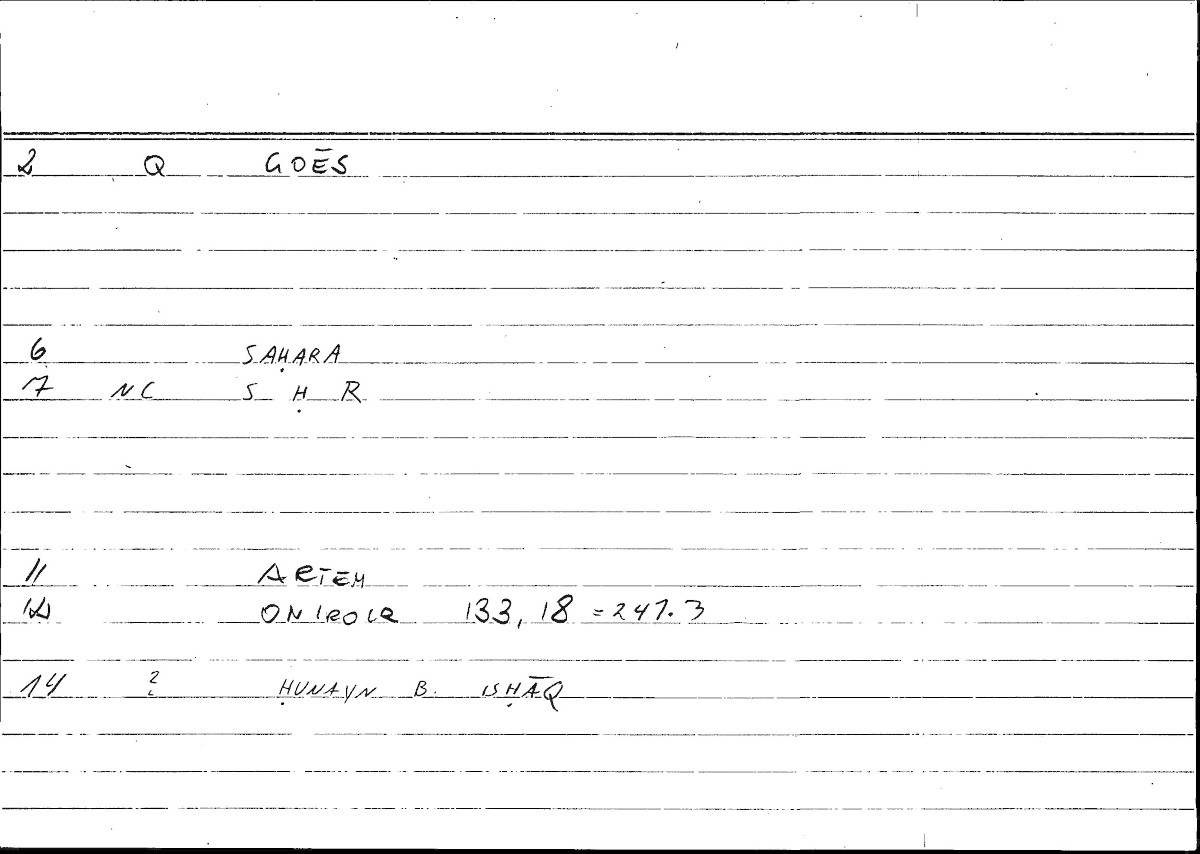 2 Q GOĒS
6 SAḤARA
7 NC S Ḥ R
11 ARTEM
12 ONIROCR 133, 18 = 247.3
14 2 ḤUNAYN B. ISḤĀQ